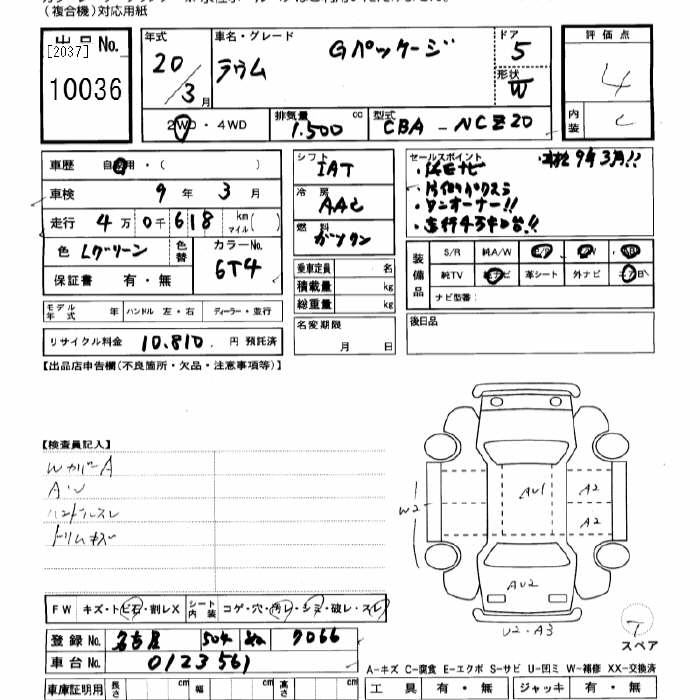 (複合機)対応用紙
出品No.
[2037]
10036
年式 20/3月
車名・グレード ラウム Gパッケージ
ドア 5
形状 W
評価点 4
内装 C
2WD・4WD
排気量 1.500 cc
型式 CBA-NCZ20
車歴 自家用・( )
車検 9年 3月
走行 4万 0千 618 km マイル( )
色 Lグリーン 色替 カラーNo. 6T4
保証書 有・無
モデル年式 年 ハンドル 左・右 ディーラー・並行
リサイクル料金 10.810. 円 預託済
シフト IAT
冷房 AAC
燃料 ガソリン
乗車定員 名
積載量 kg
総重量 kg
名変期限
月 日
セールスポイント 車検9年3月!!
・純正ナビ
・ワンオーナー!!
装備品
S/R 純A/W
純TV 純ナビ 革シート 外ナビ エアB
ナビ型番:
後日品
【出品店申告欄(不良箇所・欠品・注意事項等)】
【検査員記入】
WカバーA
A・U
ハンドルスレ
トリムキズ
W2
AU1
A2
A2
AU2
U2・A3
T
スペア
FW キズ・トビ石・割レX シート内装 コゲ・穴・汚レ・シミ・破レ・スレ
登録No. 名古屋 504 7066
車台No. 0123561
A-キズ C-腐食 E-エクボ S-サビ U-凹ミ W-補修 XX-交換済
車庫証明用 長さ cm 幅 cm 高さ cm
工具 有・無 ジャッキ 有・無